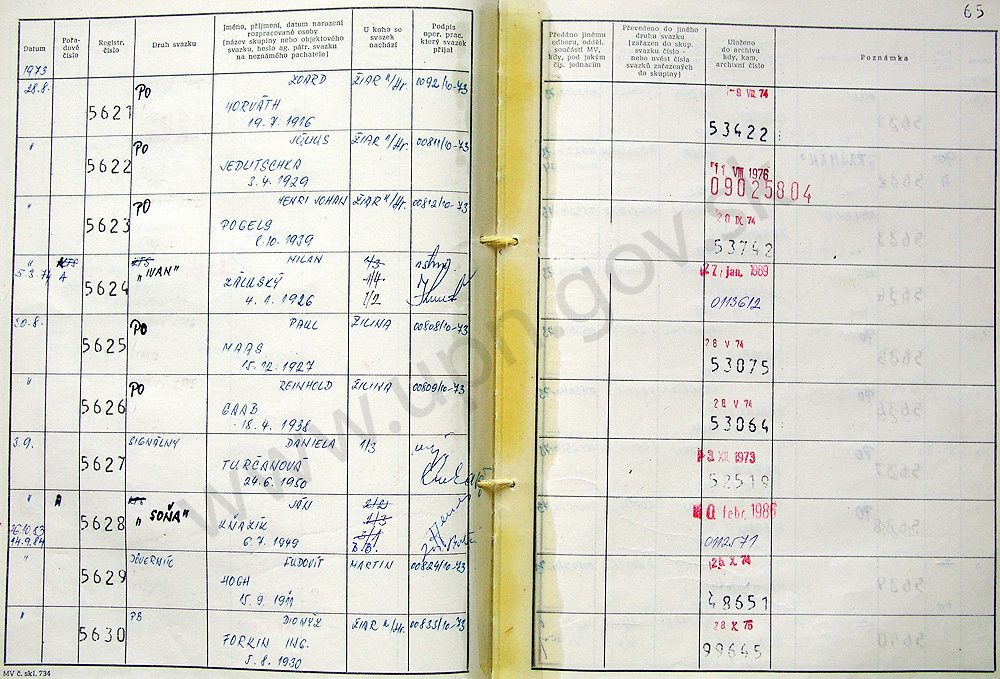 65
Datum
Pořa-
dové
číslo
Registr.
číslo
Druh svazku
Jméno, příjmení, datum narození
rozpracované osoby
(název skupiny nebo objektového
svazku, heslo ag. pátr. svazku
na neznámého pachatele)
U koho se
svazek
nachází
Podpis
oper. prac.
který svazek
přijal
Předáno jinému
odboru, odděl.
součásti MV,
kdy, pod jakým
čij. jednacím
Převedeno do jiného
druhu svazku
(zařazen do skup.
svazku číslo -
nebo uvést čísla
svazků zařazených
do skupiny)
Uloženo
do archivu
kdy, kam,
archivní číslo
Poznámka
1973
28.8. 5621 PO ZOARD ŽIAR n/Hr. 0092/10-73 -9 VII 74
HORVÁTH
19.7.1916 53422
" 5622 PO JÚLIUS ŽIAR n/Hr. 00811/10-73 11 VIII 1976
JEDLITSCHKA 09025804
3.4.1929
" 5623 PO HENRI JOHAN ŽIAR n/Hr. 00812/10-73 20 IX 74
POGELS
8.10.1939 53742
" 5624 MILAN 1/3 27. jan. 1989
5.3.74 A "IVAN" ZÁLUSKÝ 1/4
4.1.1926 1/2 0113612
30.8. 5625 PO PAUL ŽILINA 00808/10-73 28 V 74
MAAS
15.12.1927 53075
" 5626 PO REINHOLD ŽILINA 00809/10-73 28 V 74
GAAB
18.4.1938 53064
3.9. 5627 SIGNÁLNY DANIELA 1/3 3 XII 1973
TURČANOVÁ
24.6.1950 52519
" A 5628 "SOŇA" JÁN 2/2 febr. 1986
KŇAZÍK 1/3
14.9.84 6.7.1949 B.B. 0112571
" 5629 DÔVERNÍK ĽUDOVÍT MARTIN 00824/10-73 X 74
HOGH
15.9.1911 48651
" 5630 PB DIONÝZ ŽIAR n/Hr. 00833/10-73 28 X 76
FORKIN ING.
5.8.1930 99645
MV č. skl. 734
www.upn.gov.sk